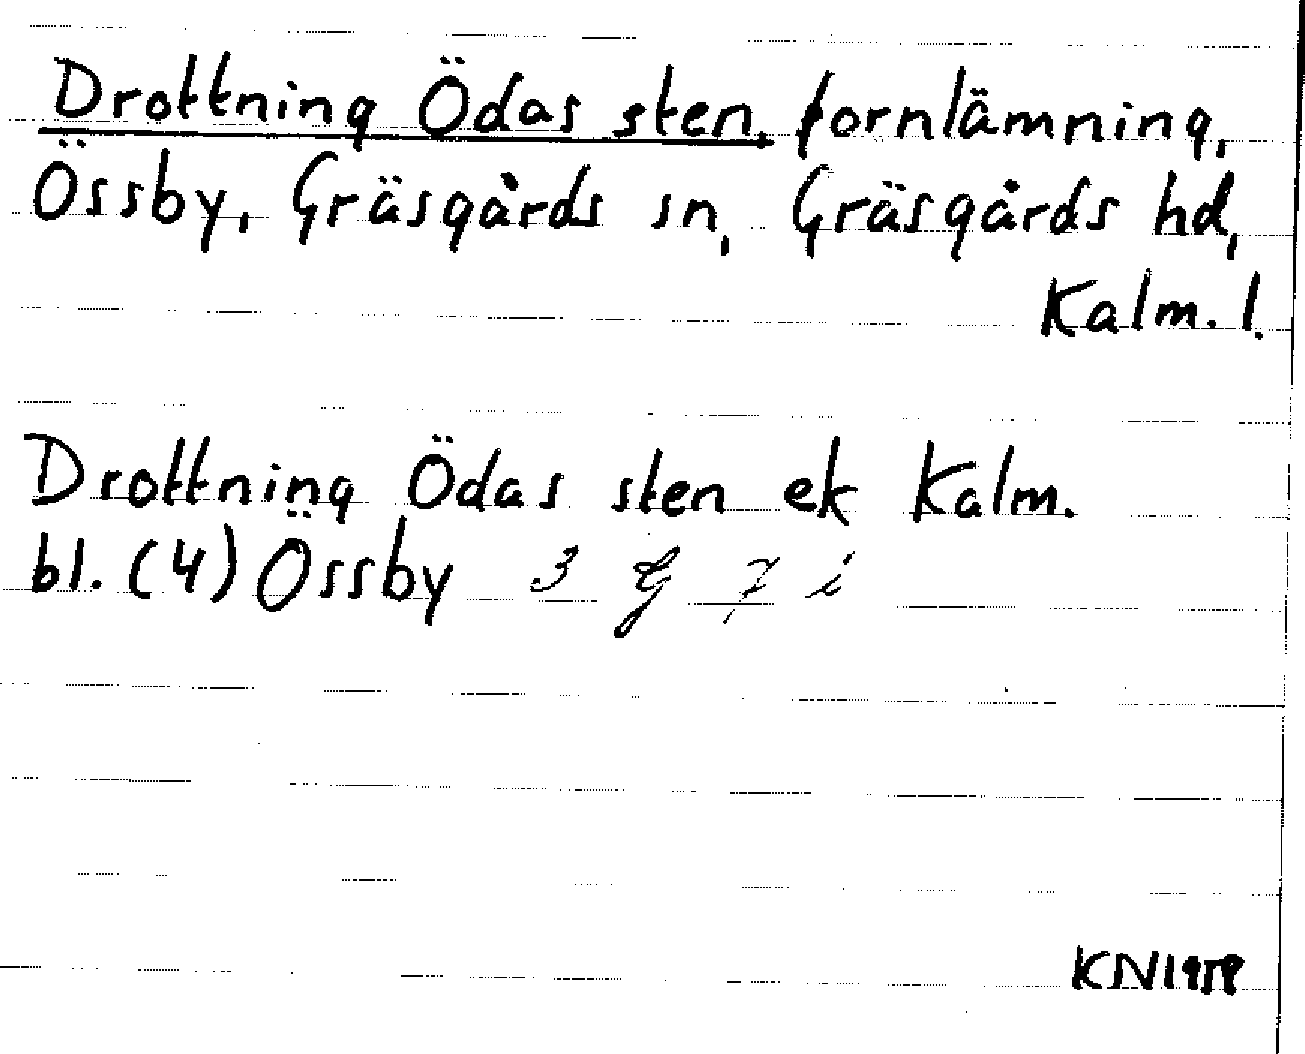 Drottning Ödas sten, fornlämning,
Össby, Gräsgårds sn, Gräsgårds hd,
Kalm. l.
Drottning Ödas sten ek Kalm.
bl. (4) Össby 3 G 7 i
KN 1959